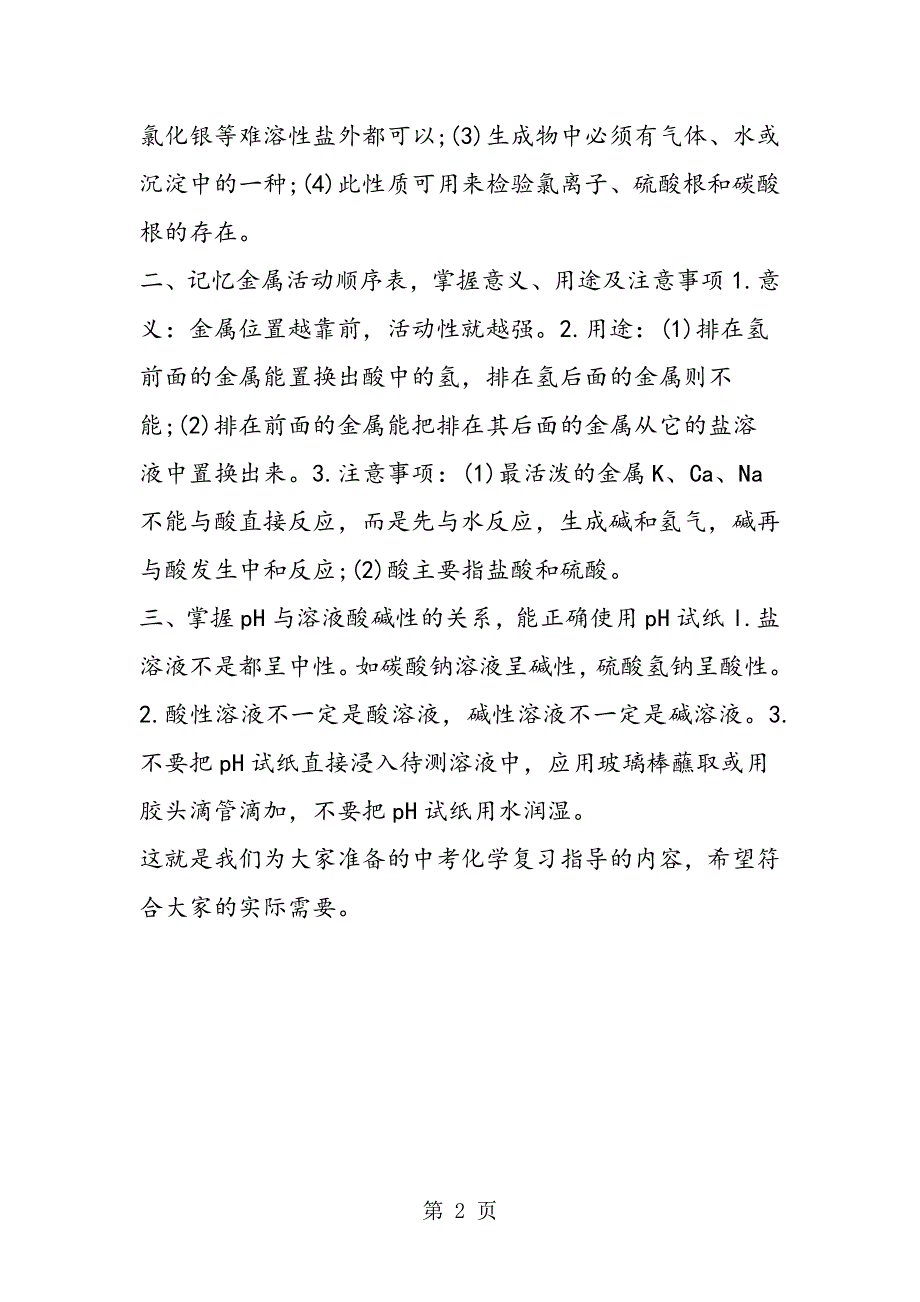 氯化银等难溶性盐外都可以;(3)生成物中必须有气体、水或
沉淀中的一种;(4)此性质可用来检验氯离子、硫酸根和碳酸
根的存在。
二、记忆金属活动顺序表，掌握意义、用途及注意事项 1.意
义：金属位置越靠前，活动性就越强。2.用途：(1)排在氢
前面的金属能置换出酸中的氢，排在氢后面的金属则不
能;(2)排在前面的金属能把排在其后面的金属从它的盐溶
液中置换出来。3.注意事项：(1)最活泼的金属 K、Ca、Na
不能与酸直接反应，而是先与水反应，生成碱和氢气，碱再
与酸发生中和反应;(2)酸主要指盐酸和硫酸。
三、掌握 pH 与溶液酸碱性的关系，能正确使用 pH 试纸 l.盐
溶液不是都呈中性。如碳酸钠溶液呈碱性，硫酸氢钠呈酸性。
2.酸性溶液不一定是酸溶液，碱性溶液不一定是碱溶液。3.
不要把 pH 试纸直接浸入待测溶液中，应用玻璃棒蘸取或用
胶头滴管滴加，不要把 pH 试纸用水润湿。
这就是我们为大家准备的中考化学复习指导的内容，希望符
合大家的实际需要。
第 2 页